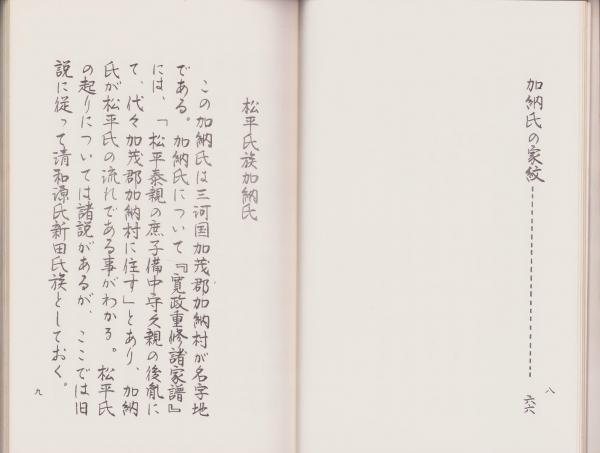 加納氏の家紋----------------------------六六
八
松平氏族加納氏
この加納氏は三河国加茂郡加納村が名字地
である。加納氏について『寛政重修諸家譜』
には、「松平泰親の庶子備中守久親の後胤に
て、代々加茂郡加納村に住す」とあり、加納
氏が松平氏の流れである事がわかる。松平氏
の起りについては諸説があるが、ここでは旧
説に従って清和源氏新田氏族としておく。
九